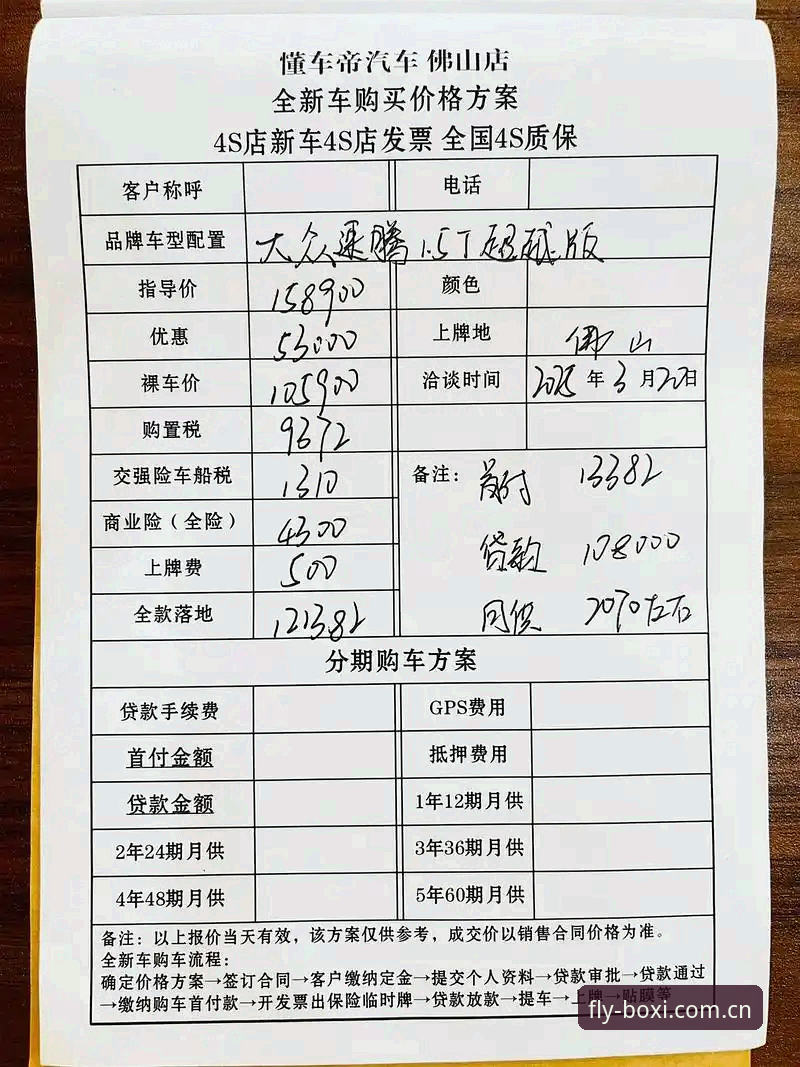 懂车帝汽车 佛山店
全新车购买价格方案
4S店新车4S店发票 全国4S质保
客户称呼 电话
品牌车型配置 大众速腾1.5T超越版
指导价 158900 颜色
优惠 53000 上牌地 佛山
裸车价 105900 洽谈时间 2025年3月20日
购置税 9372
交强险车船税 1310 备注: 首付 13382
商业险（全险） 4300 贷款 108000
上牌费 500
全款落地 121382 月供 2070左右
分期购车方案
贷款手续费 GPS费用
首付金额 抵押费用
贷款金额 1年12期月供
2年24期月供 3年36期月供
4年48期月供 5年60期月供
备注：以上报价当天有效，该方案仅供参考，成交价以销售合同价格为准。
全新车购车流程：
确定价格方案→签订合同→客户缴纳定金→提交个人资料→贷款审批→贷款通过
→缴纳购车首付款→开发票出保险临时牌→贷款放款→提车→上牌→贴膜等
fly-boxi.com.cn